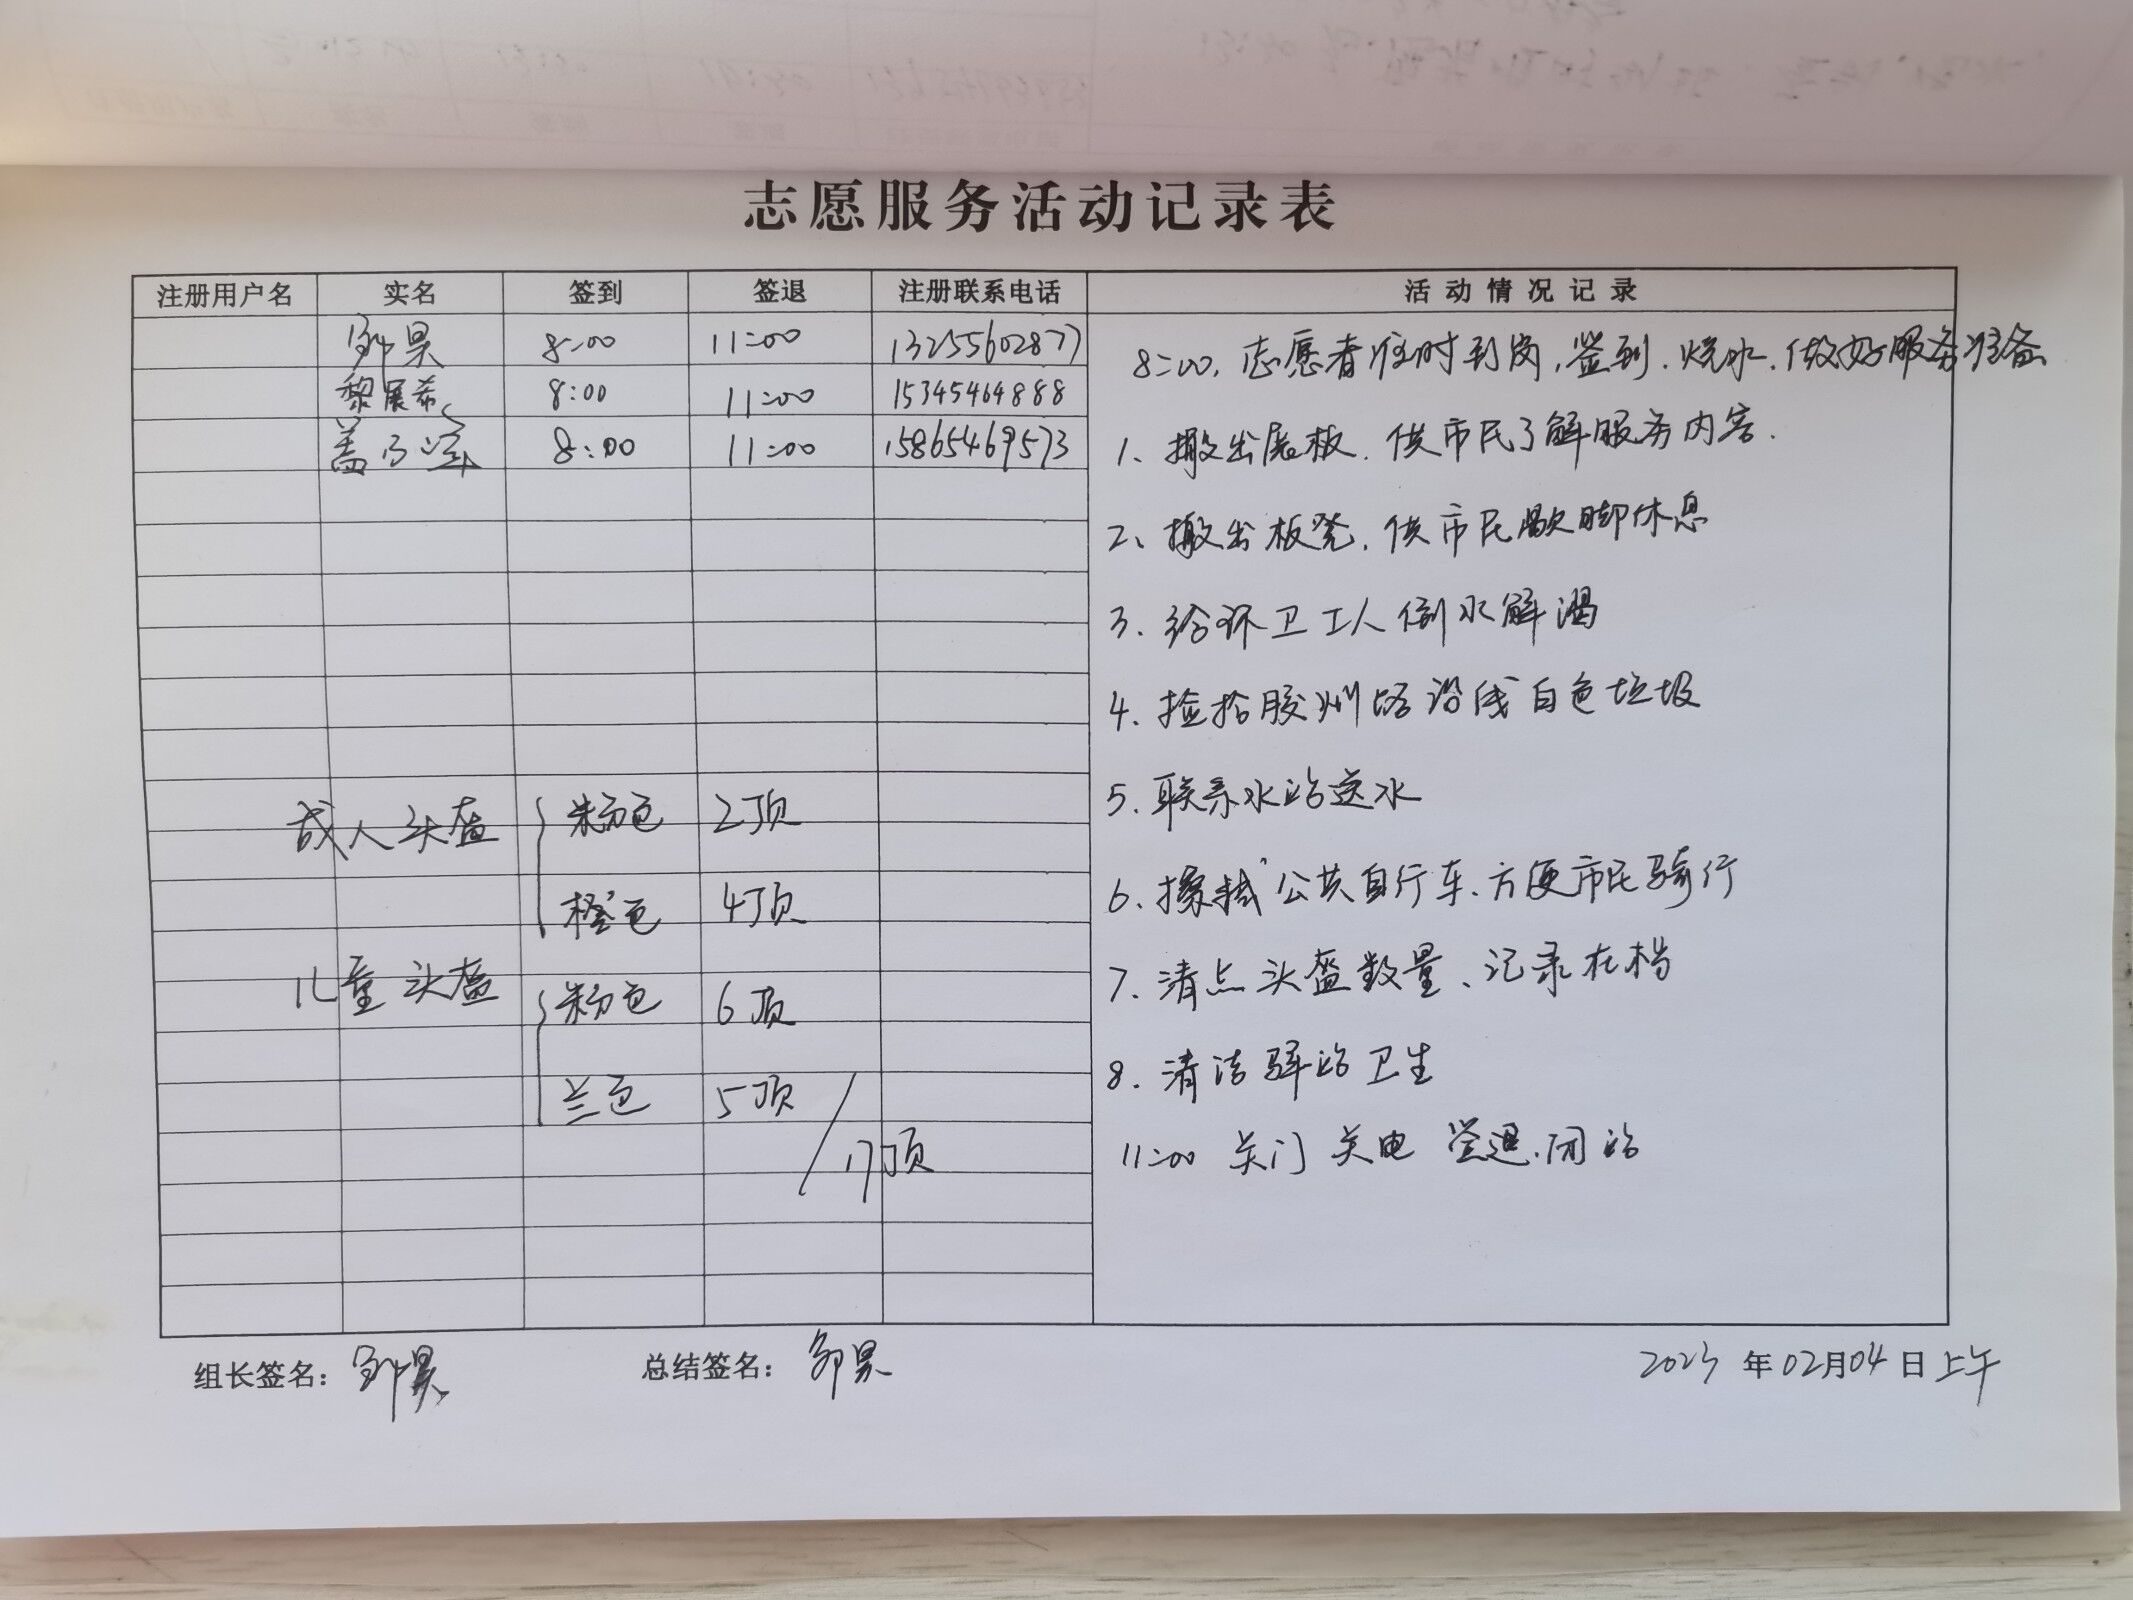 志愿服务活动记录表
注册用户名 实名 签到 签退 注册联系电话 活动情况记录
邹昊 8:00 11:00 13255602877
黎展希 8:00 11:00 15345464888
盖 8:00 11:00 15865469573
8:00，志愿者准时到岗，签到，烧水，做好服务准备
1、搬出展板，供市民了解服务内容．
2、搬出板凳，供市民歇脚休息
3．给环卫工人倒水解渴
4．捡拾胶州路沿线白色垃圾
5．联系水站送水
6．擦拭公共自行车、方便市民骑行
7．清点头盔数量、记录在档
8．清洁驿站卫生
11:00 关门 关电 签退．闭站
成人头盔 朱粉色 2顶
橙色 4顶
儿童头盔 朱粉色 6顶
兰色 5顶
17顶
组长签名：邹昊 总结签名：邹昊 2023年02月04日上午